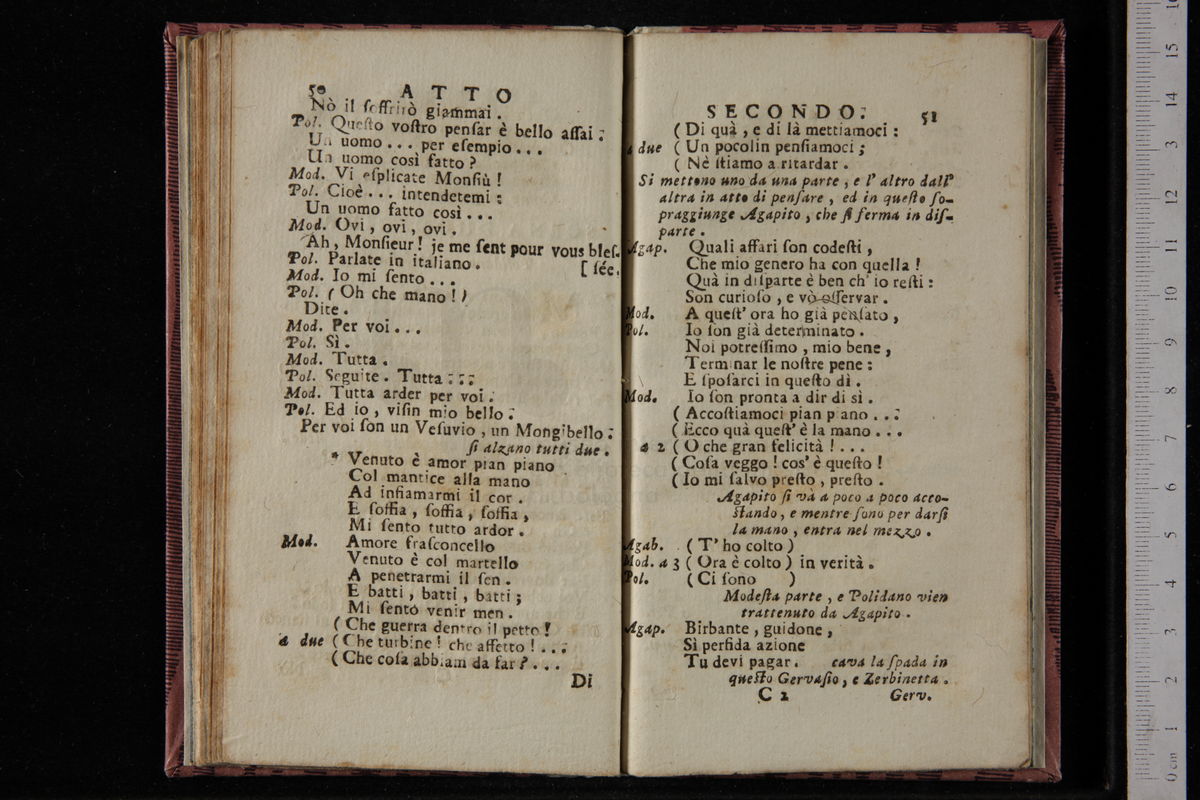 50 ATTO
Nò il ſoffrirò giammai.
Pol. Queſto voſtro penſar è bello aſſai:
Un uomo... per eſempio...
Un uomo così fatto?
Mod. Vi eſplicate Monſiù!
Pol. Cioè... intendetemi:
Un uomo fatto così...
Mod. Ovi, ovi, ovi.
Ah, Monſieur! je me ſent pour vous bleſ-
Pol. Parlate in italiano. [ſée.
Mod. Io mi ſento...
Pol. (Oh che mano!)
Dite.
Mod. Per voi...
Pol. Sì.
Mod. Tutta.
Pol. Seguite. Tutta:::
Mod. Tutta arder per voi.
Pol. Ed io, viſin mio bello:
Per voi ſon un Veſuvio, un Mongibello:
ſi alzano tutti due.
* Venuto è amor pian piano
Col mantice alla mano
Ad infiamarmi il cor.
E ſoffia, ſoffia, ſoffia,
Mi ſento tutto ardor.
Mod. Amore fraſconcello
Venuto è col martello
A penetrarmi il ſen.
E batti, batti, batti;
Mi ſento venir men.
(Che guerra dentro il petto!
a due (Che turbine! che affetto!...
(Che coſa abbiam da far?...
Di
SECONDO. 51
(Di quà, e di là mettiamoci:
a due (Un pocolin penſiamoci;
(Nè ſtiamo a ritardar.
Si mettono uno da una parte, e l' altro dall'
altra in atto di penſare, ed in queſto ſo-
praggiunge Agapito, che ſi ferma in diſ-
parte.
Agap. Quali affari ſon codeſti,
Che mio genero ha con quella!
Quà in diſparte è ben ch' io reſti:
Son curioſo, e vò oſſervar.
Mod. A queſt' ora ho già penſato,
Pol. Io ſon già determinato.
Noi potreſſimo, mio bene,
Terminar le noſtre pene:
E ſpoſarci in queſto dì.
Mod. Io ſon pronta a dir di sì.
(Accoſtiamoci pian piano...
(Ecco quà queſt' è la mano...
a 2 (O che gran felicità!...
(Coſa veggo! cos' è queſto!
(Io mi ſalvo preſto, preſto.
Agapito ſi và a poco a poco acco-
ſtando, e mentre ſono per darſi
la mano, entra nel mezzo.
Agab. (T' ho colto)
Mod. a 3 (Ora è colto) in verità.
Pol. (Ci ſono )
Modeſta parte, e Polidano vien
trattenuto da Agapito.
Agap. Birbante, guidone,
Sì perfida azione
Tu devi pagar. cava la ſpada in
queſto Gervaſio, e Zerbinetta.
C 2 Gerv.